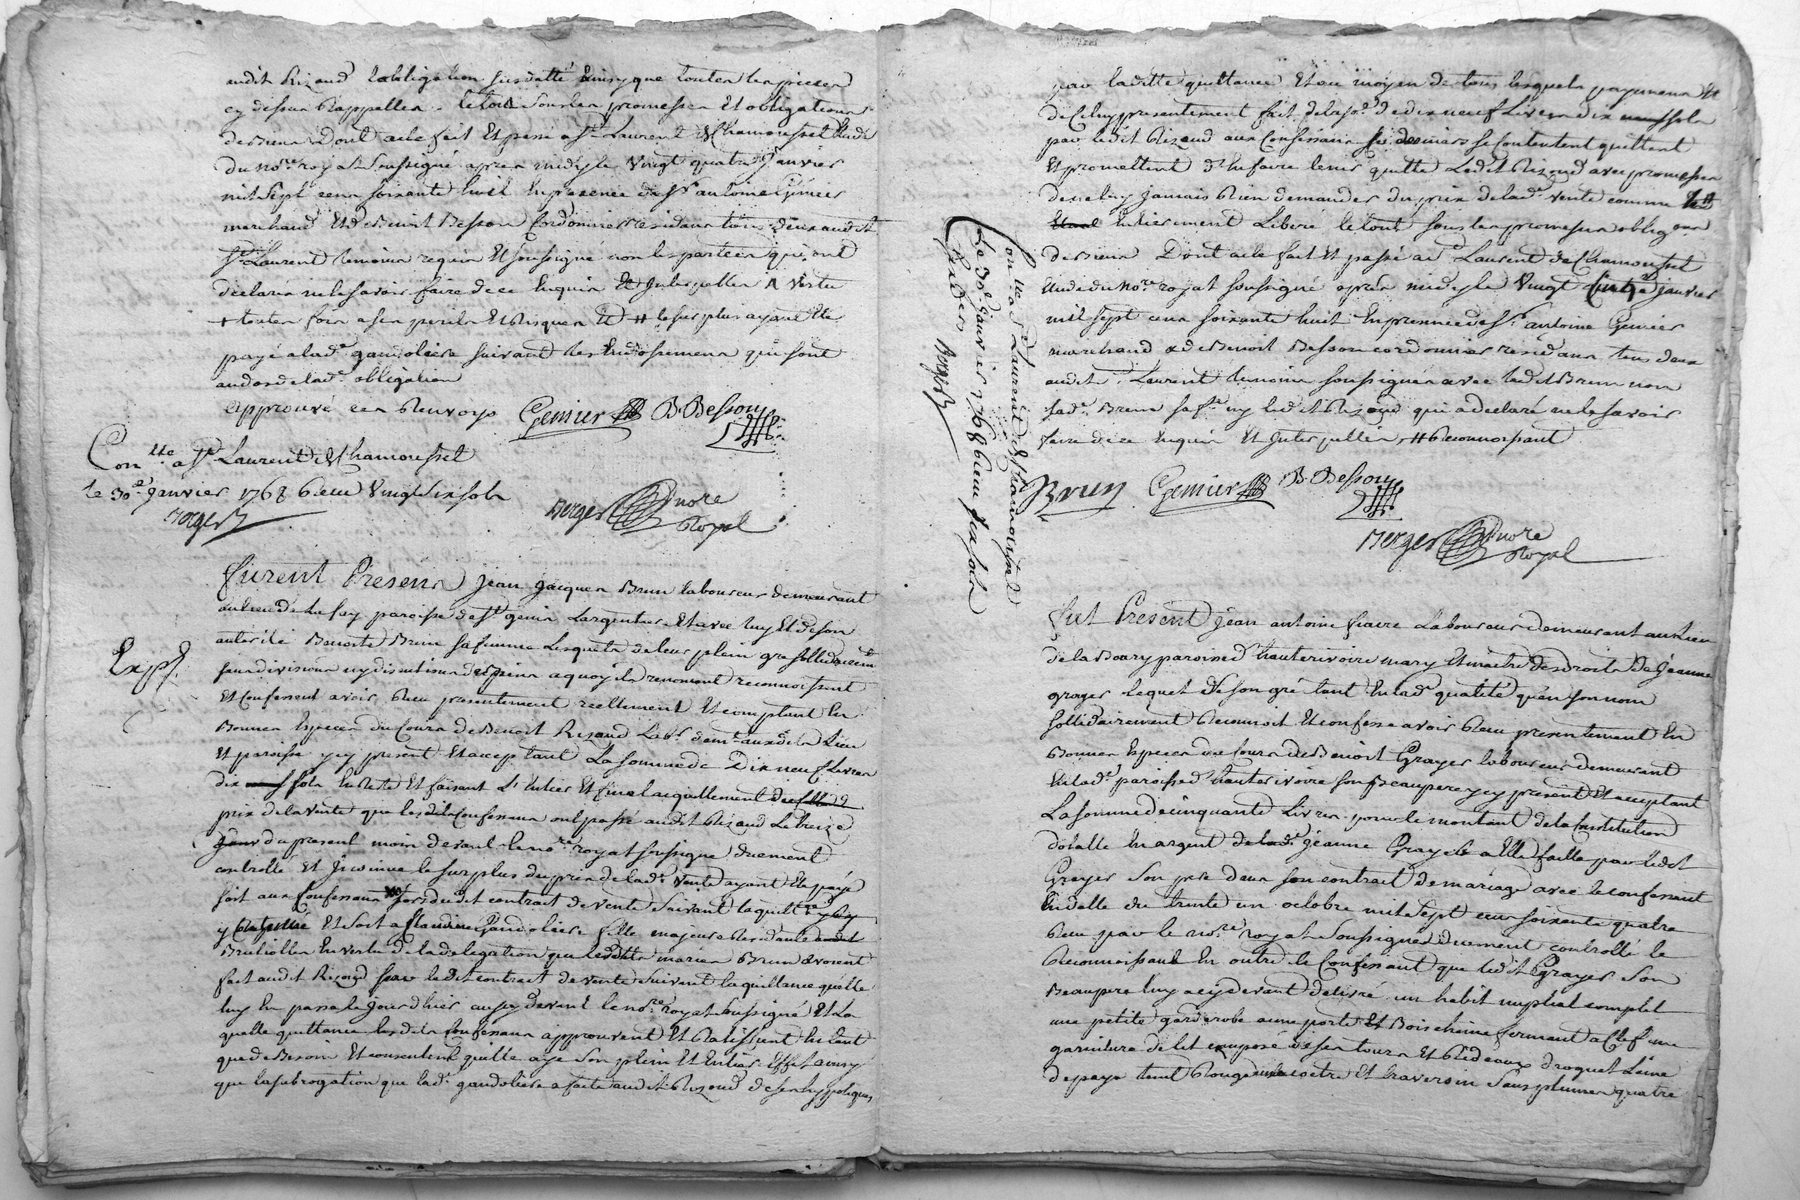 audit Rizaud l'obligation susdatté ainsy que toutes les pieces
cy dessus Rappellés. le tout sous les promesses Et obligations
des biens dont acte fait Et passé a St Laurent de Chamousset Etude
du nore royal soussigné apres midy le vingt quatre Janvier
mil sept cens soixante huit En presence de sr antoine Genier
marchand Et de Benoit Besson Cordonnier residans tous deux audit
St Laurent temoins requis Et soussigné non les parties qui ont
déclarés ne le savoir faire de ce Enquis Et Interpellés
+ toutes fois a ses perils Et Risques # le surplus ayant Eté
payé a lade gandoliere suivant les Endossemens qui sont
au dos de lade obligation
Approuvé ces Renvoys Genier B. Besson
Conlle a St Laurent de Chamousset
le 30e janvier 1768 Receu vingt six sols
Berger
Berger nore
Royal
Furent Presens Jean Jacques Brun laboureur demeurant
au lieu de du fay paroisse de St genis Largentiere Et avec luy Et de son
autorité Benoite Brun sa femme Lesquels de leur plein gré sollidairement
sans division ny discution des biens a quoy ils renoncent reconnoissent
Expe.
Et Confessent avoir Receu presentement reellement Et comptant En
Bonnes Especes du Cours de Benoit Rizaud Labr demt audit Lieu
Et paroisse icy present Et acceptant La somme de Dix neuf Livres
dix sols En Reste Et faisant L'Entier Et final acquittement
prix de la vente que lesdits Confessans ont passé audit Rizaud Le treize
du present mois devant le nore royal soussigné duement
controllé Et Insinué le surplus du prix de lade vente ayant Eté payé
soit aux Confessans lors dudit contract de vente suivant la quittance
y Et soit a Claudine Gandoliere fille majeure Residante
Brulliolles En vertu de la delegation que lesdits mariés Brun avoient
fait audit Rizaud par ledit contract de vente suivant la quittance quelle
luy En passa le jour d'hier aussy devant le nore royal soussigné Et La
quelle quittance lesdits Confessans approuvent Et Ratiffient En tant
que de Besoin Et consentent quelle aye son plein Et Entier Effet ainsy
que la subrogation que lade gandoliere a faite audit Rizaud de ses hypotêques
par laditte quittance Et au moyen de tous lesquels payemens Et
de Celuy presentement fait de lade so. de dix neuf Livres dix sols
par ledit Rizaud aux Confessans ces derniers se Contentent quittent
Et promettent d'En faire tenir quitte Ledit Rizaud avec promesse
de ne luy jamais Rien demander du prix de lade vente comme
Entierement Liberé le tout sous les promesses obligons
des biens Dont acte fait Et passé a St Laurent de Chamousset
Etude du Nore royal soussigné apres midy le vingt janvier
mil sept cens soixante huit En presence de sr antoine Genier
marchand & de Benoit Besson cordonnier residans tous deux
audit St Laurent temoins soussignés avec ledit Brun non
lade Brun sa fe ny ledit Rizaud qui a declaré ne le savoir
faire de ce Enquis Et Interpellés # Reconnoissant
Brun Genier B. Besson
Berger nore
Royal
Conlle a St Laurent de Chamousset
le 30e Janvier 1768 Receu sols
Berger
Fut Present Jean antoine fiavre Laboureur demeurant au Lieu
de la Boury paroisse d'hauterivoire mary Et maître des droits de Jeanne
grayes Lequel de son gré tant En lade qualité qu'en son nom
sollidairement Reconnoit Et confesse avoir Receu presentement En
Bonnes Especes du Cours de Benoit Grayes laboureur demeurant
En lade paroisse d'hauterivoire son Beaupere icy present Et acceptant
La somme de cinquante Livres pour le montant de la Constitution
dotalle En argent de lade Jeanne Grayes a Elle faitte par ledit
Grayes son pere dans son contract de mariage avec le confessant
En datte du trente un octobre mil sept cens soixante quatre
Receu par le nore royal soussigné duement controllé le
Reconnoissant En outre le Confessant que ledit Grayes son
Beaupere luy a cy devant delivré un habit nuptial complet
une petite garderobe a une porte Et Bois chêne fermant a Clef une
garniture de lit composé de ses tours Et Rideaux droguet Laine
de pays teint Rouge coitre Et traversin sans plumes quatre